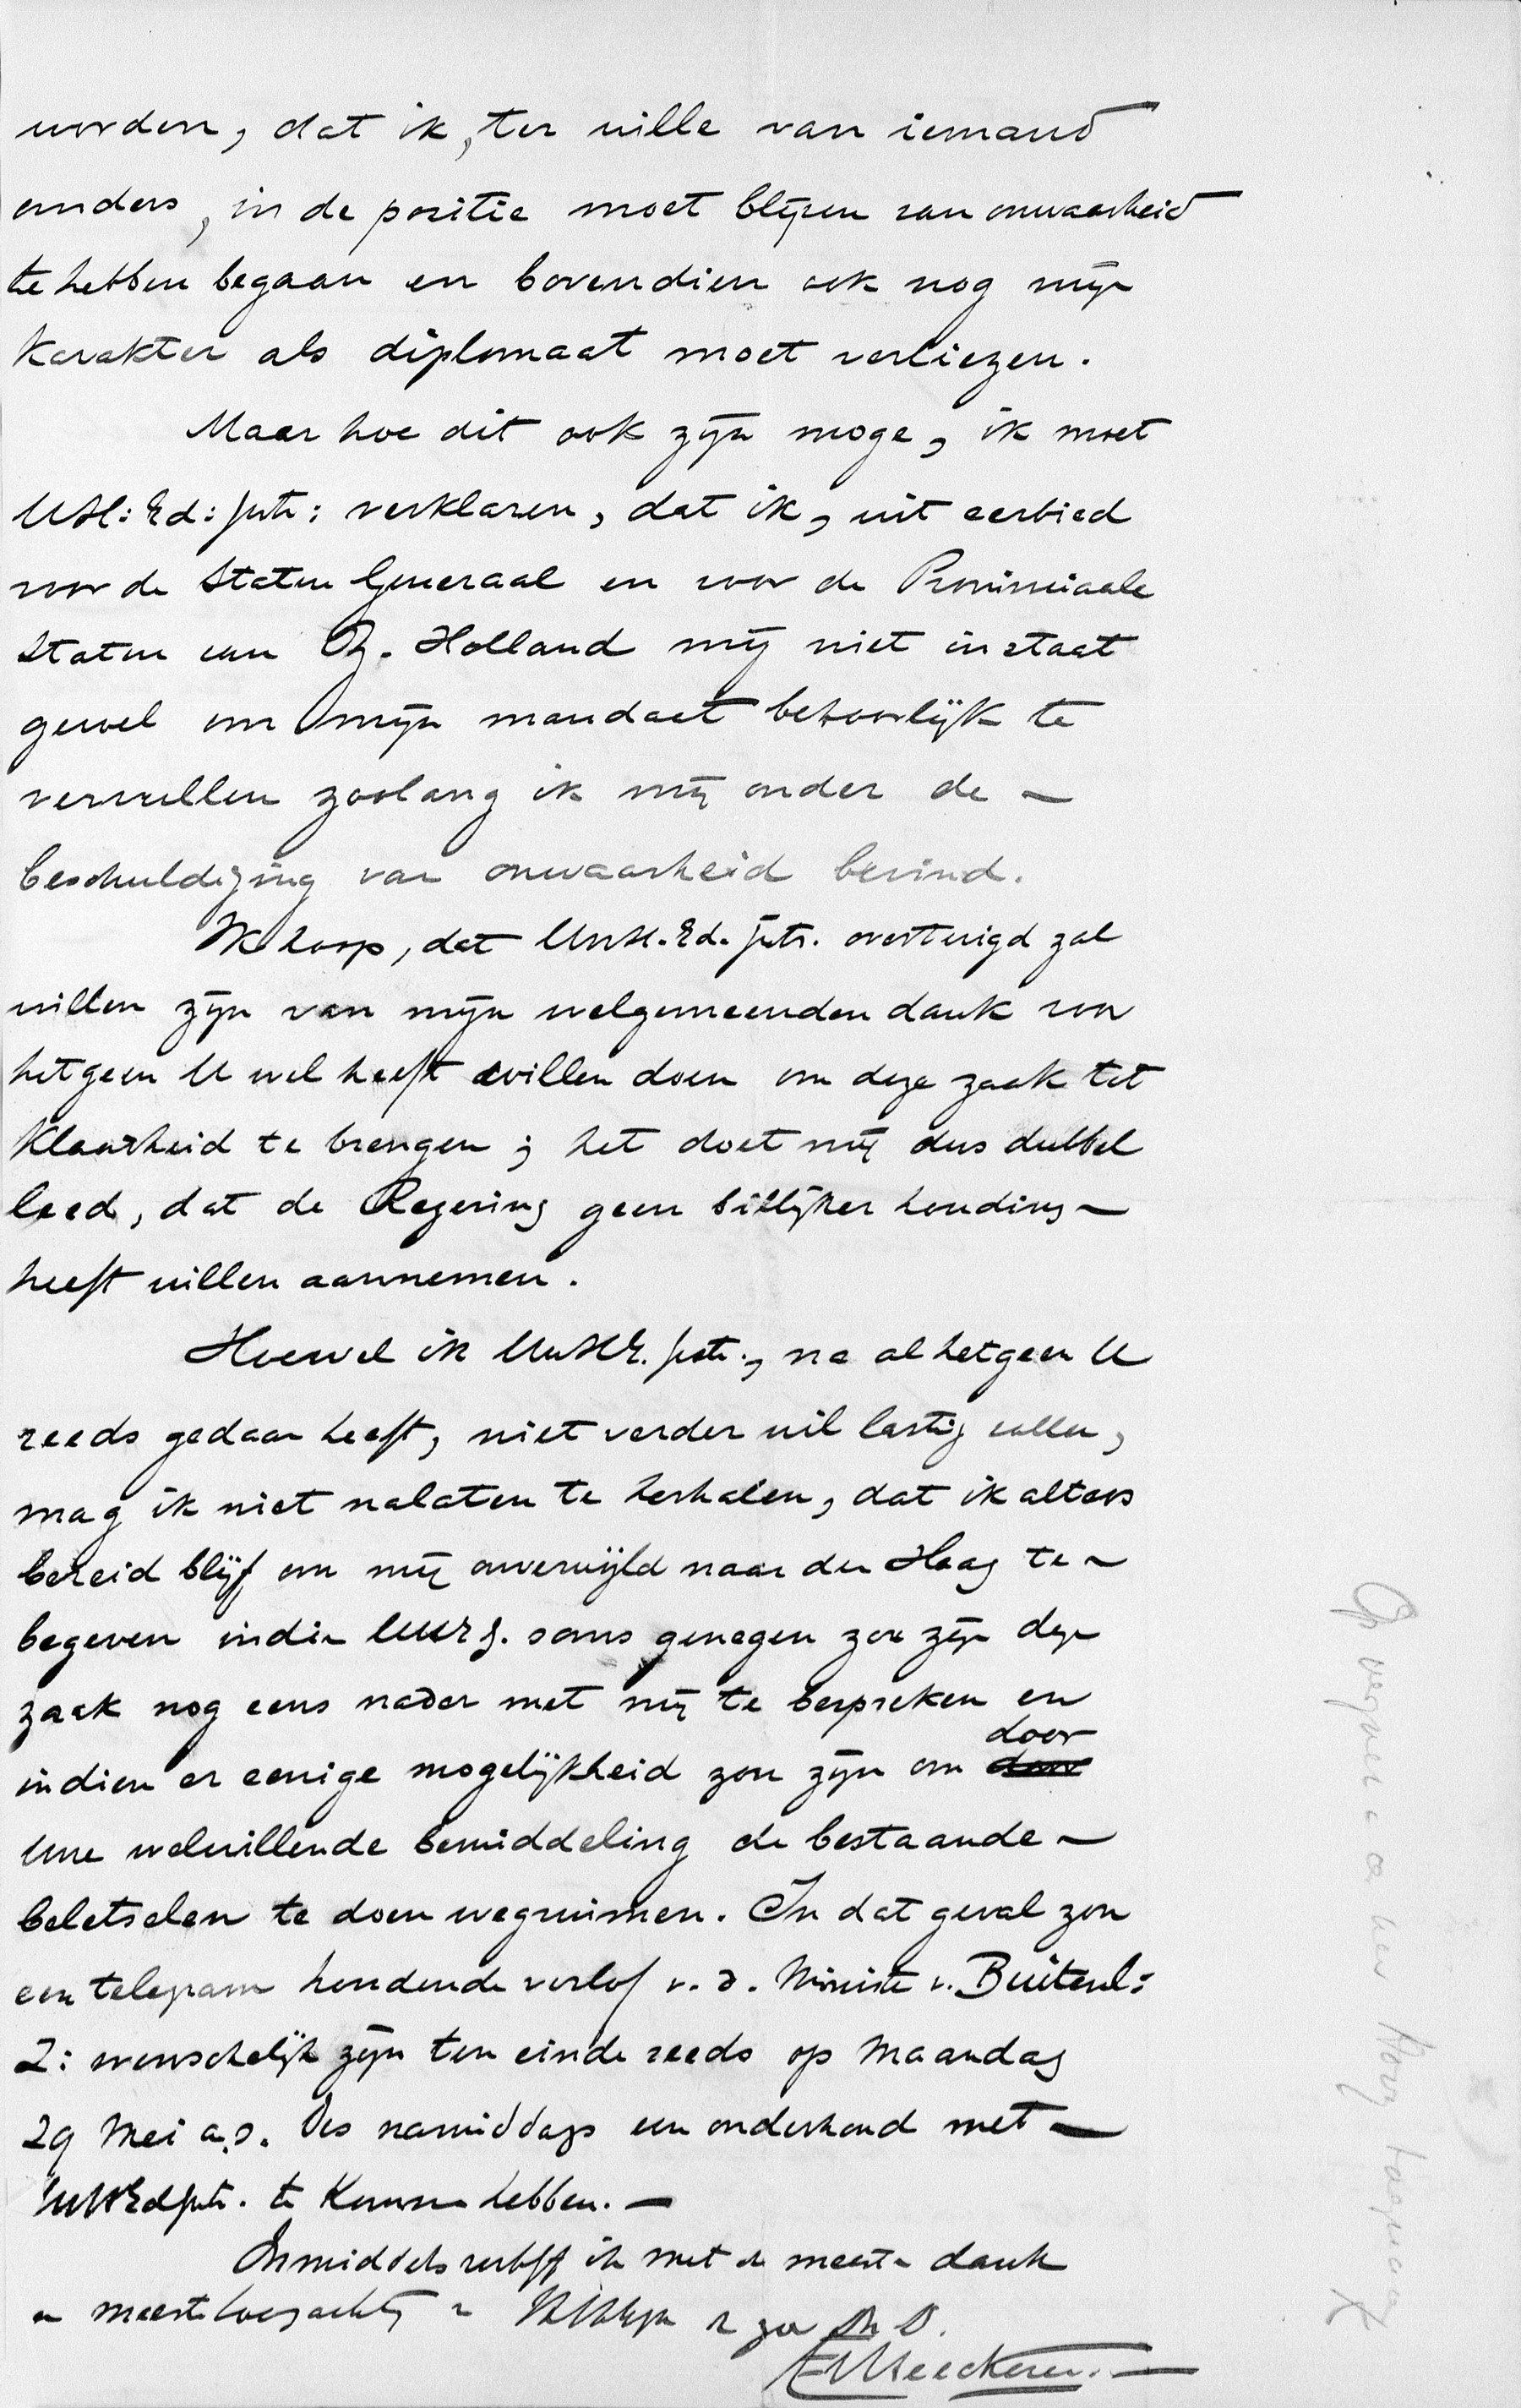 worden, dat ik, ter wille van iemand
anders, in de positie moet blijven van onwaarheid
te hebben begaan en bovendien ook nog mijn
karakter als diplomaat moet verliezen.
Maar hoe dit ook zijn moge, ik moet
UH: Ed: Gestr: verklaren, dat ik, uit eerbied
voor de Staten Generaal en voor de Provinciaale
Staten van Z. Holland mij niet in staat
gevoel om mijn mandaat behoorlijk te
vervullen zoolang ik mij onder de
beschuldiging van onwaarheid bevind.
Ik hoop, dat UwH. Ed. Gestr. overtuigd zal
willen zijn van mijn welgemeenden dank voor
hetgeen U wel heeft willen doen om deze zaak tot
klaarheid te brengen; het doet mij dus dubbel
leed, dat de Regering geen billijker houding
heeft willen aannemen.
Hoewel ik UwHE. Gestr., na al hetgeen U
reeds gedaan heeft, niet verder wil lastig vallen,
mag ik niet nalaten te herhalen, dat ik altoos
bereid blijf om mij onverwijld naar den Haag te
begeven indien UHEG. soms genegen zou zijn deze
zaak nog eens nader met mij te bespreken en
indien er eenige mogelijkheid zou zijn om door
Uwe welwillende bemiddeling de bestaande
beletselen te doen wegruimen. In dat geval zou
een telegram houdende verlof v. d. Minister v. Buitenl:
Z: wenschelijk zijn ten einde reeds op Maandag
29 Mei a.s. des namiddags een onderhoud met
UwHEdGestr. te kunnen hebben.
Inmiddels verblijf ik met de meeste dank
en meeste hoogachting